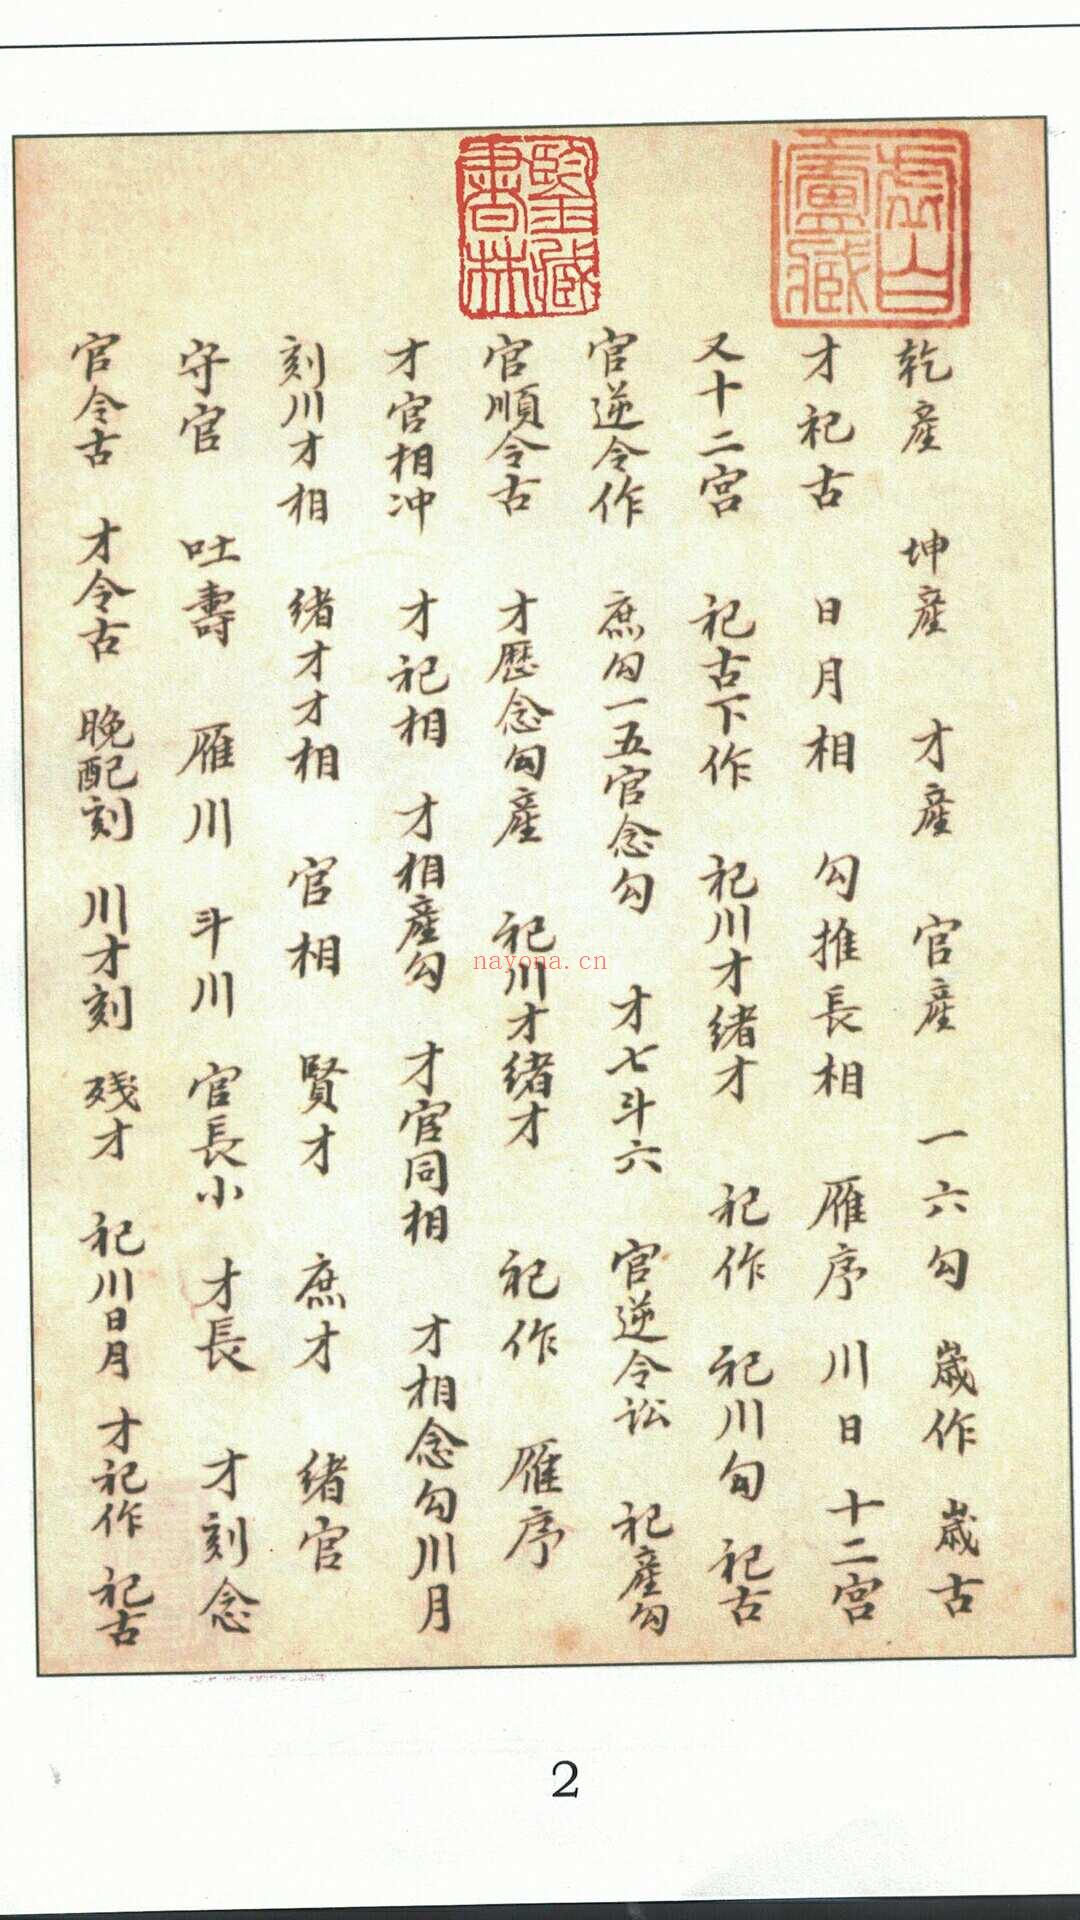 乾産 坤産 才産 官産 一六勾 歳作 歳古
才祀古 日月相 勾推長相 雁序 川日 十二宮
又十二宮 祀古下作 祀川才緒才 祀作 祀川旬 祀古
官逆令作 庶勾一五官念勾 才七斗六 官逆令訟 祀産勾
官順令古 才歷念勾産 祀川才緒才 祀作 雁序
才官相冲 才祀相 才相産勾 才官同相 才相念勾川月
刻川才相 緒才才相 官相 賢才 庶才 緒官
守官 吐壽 雁川 斗川 官長小 才長 才刻念
官令古 才令古 晚配刻 川才刻 残才 祀川日月 才祀作 祀古
虛白廬藏
鑒藏書林
nayona.cn
2